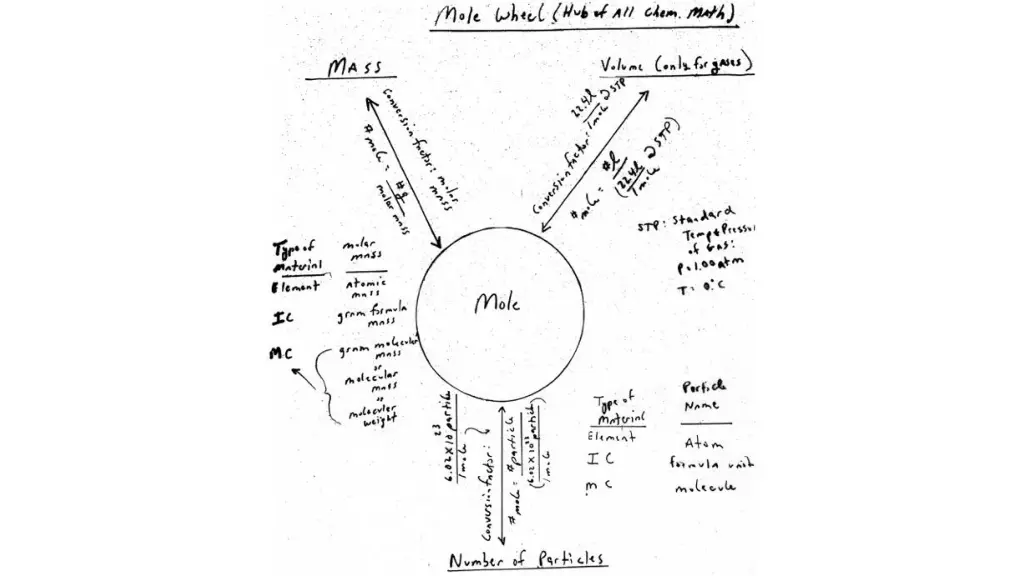 Mole Wheel (Hub of All Chem. Math)
Mass
Volume (only for gases)
Conversion factor: molar mass
# mole = # g / molar mass
Conversion factor: 22.4 l / 1 mole @ STP
# mole = # l / (22.4 l / 1 mole @ STP)
STP: Standard
Temp & Pressur
of Gas:
P = 1.00 atm
T = 0°C
Type of material
molar mass
Element
Atomic mass
IC
gram formula mass
MC
gram molecular mass
or
molecular mass
or
molecular weight
Mole
Conversion factor: 6.02 x 10^23 particle / 1 mole
# mole = # particle / (6.02 x 10^23 particle / 1 mole)
Type of material
Particle Name
Element
Atom
IC
formula unit
MC
molecule
Number of Particles